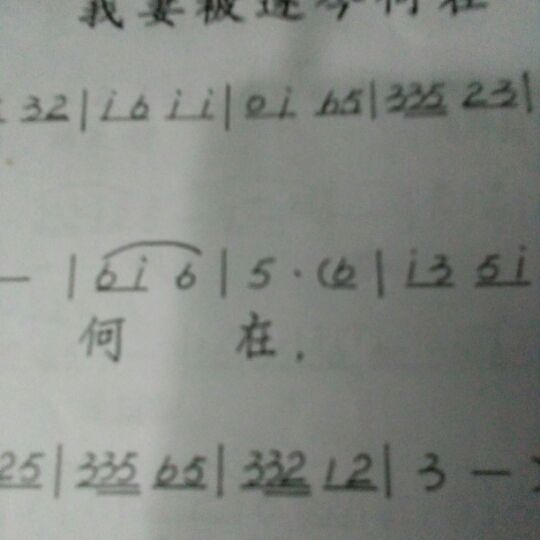 我要被逐今何在
32 | i 6 i i | 0 i 65 | 335 23 |
— | 6 i 6 | 5 · (6 | i3 5i
何 在 .
25 | 335 65 | 332 12 | 3 —